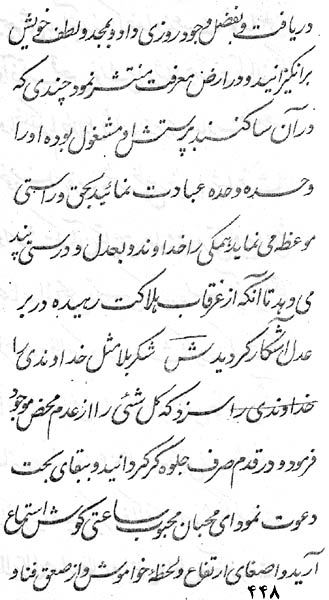 دریافت و بفضل وجود روزی داد و بمجد و لطف خویش
برانگیزانید و در ارض معرفت منتشر نمود چندی که
در آن ساکنند بپرستش او مشغول بوده او را
وحده وحده عبادت نمائید بحق و راستی
موعظه می نماید همگی را خداوند و بعدل و درستی پند
می دهد تا آنکه از غرقاب هلاکت رهیده در بر
عدل آشکار گردیدش شکر بلامثل خداوندی را
خداوندی را سزد که کل شئی را از عدم محض موجود
فرمود و در قدم صرف جلوه گر گردانید و ببقای بحت
دعوت نمود ای محبان محبوب ساعتی گوش استماع
آرید و اصغای ارتفاع و لحظهٔ خواموش و از صعق فنا و
۴۴۸